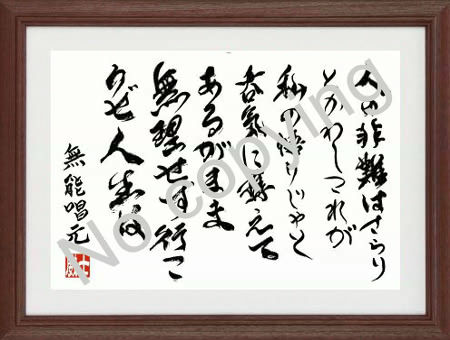 人の非難はさらり
とかわしこれが
私の悟りじゃと
呑気に構えて
あるがまま
無理せず行こ
うぜ人生は
無能唱元
No copying